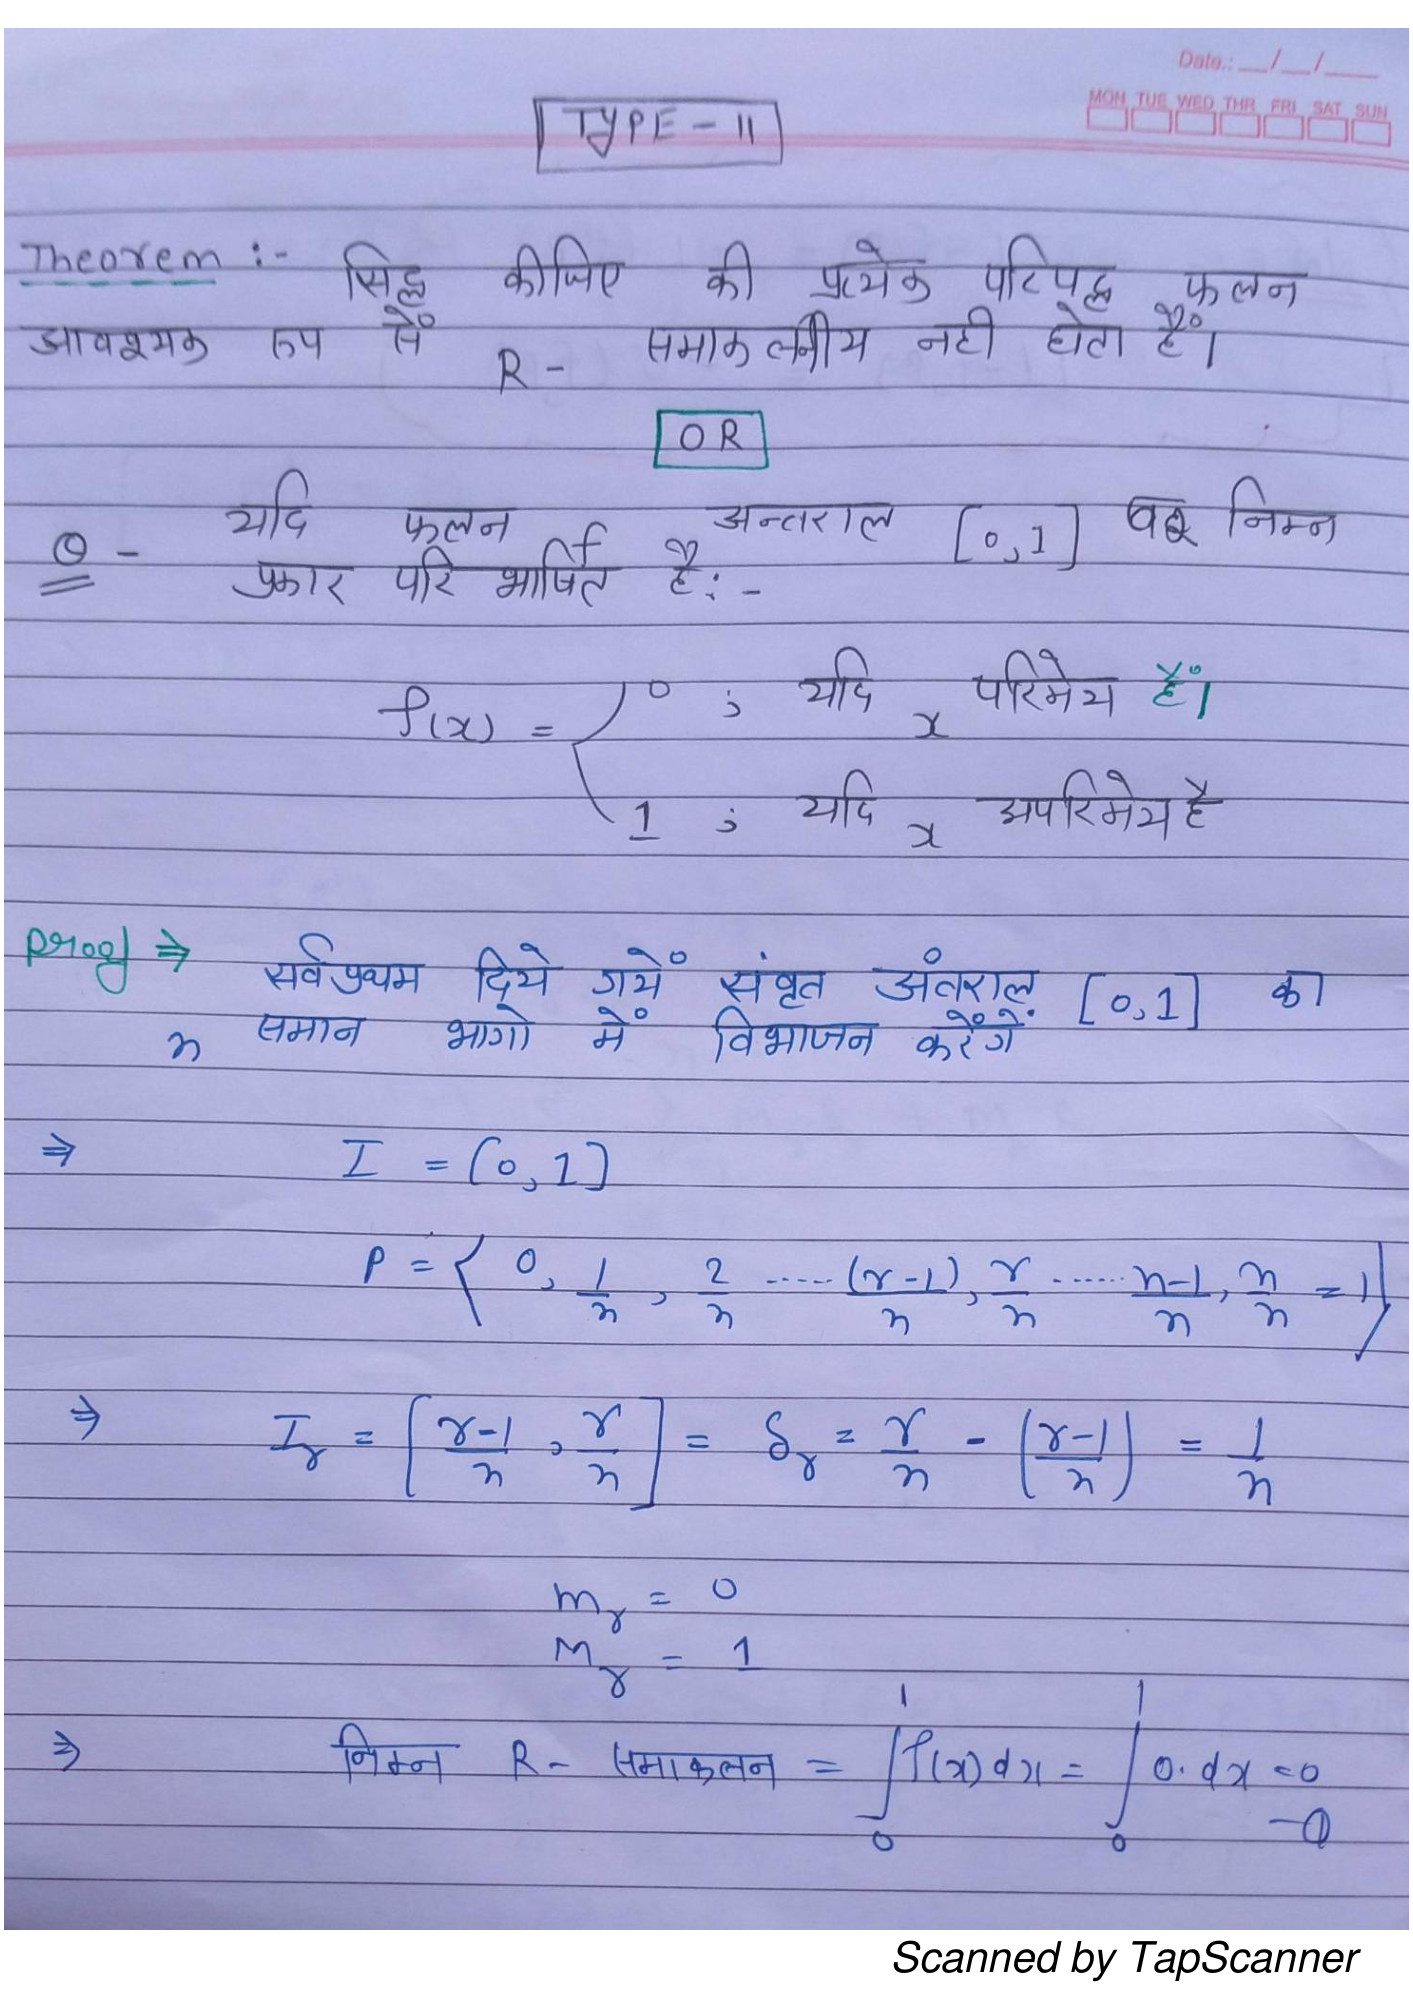 Date.: __/__/___
MON TUE WED THR FRI SAT SUN
TYPE - II
Theorem :- सिद्ध कीजिए की प्रत्येक परिबद्ध फलन
आवश्यक रुप सें R - समाकलनीय नही होता हैं।
OR
Q - यदि फलन f अन्तराल [0,1] पर निम्न
प्रकार परिभाषित है:-
f(x) = { 0 ; यदि x परिमेय हैं।
1 ; यदि x अपरिमेय है
Proof ⇒ सर्वप्रथम दिये गयें संवृत अंतराल [0,1] का
n समान भागो में विभाजन करेंगें
⇒ I = [0,1]
P = { 0, 1/n, 2/n ..... (r-1)/n, r/n ...... n-1/n, n/n = 1}
⇒ I_r = [r-1/n, r/n] = δ_r = r/n - (r-1/n) = 1/n
m_r = 0
M_r = 1
⇒ निम्न R - समाकलन = ∫_0^1 f(x)dx = ∫_0^1 0.dx = 0
-①
Scanned by TapScanner